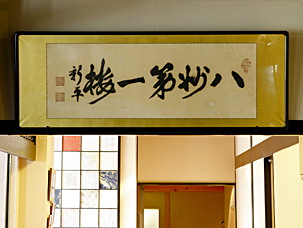 八州第一楼
新平